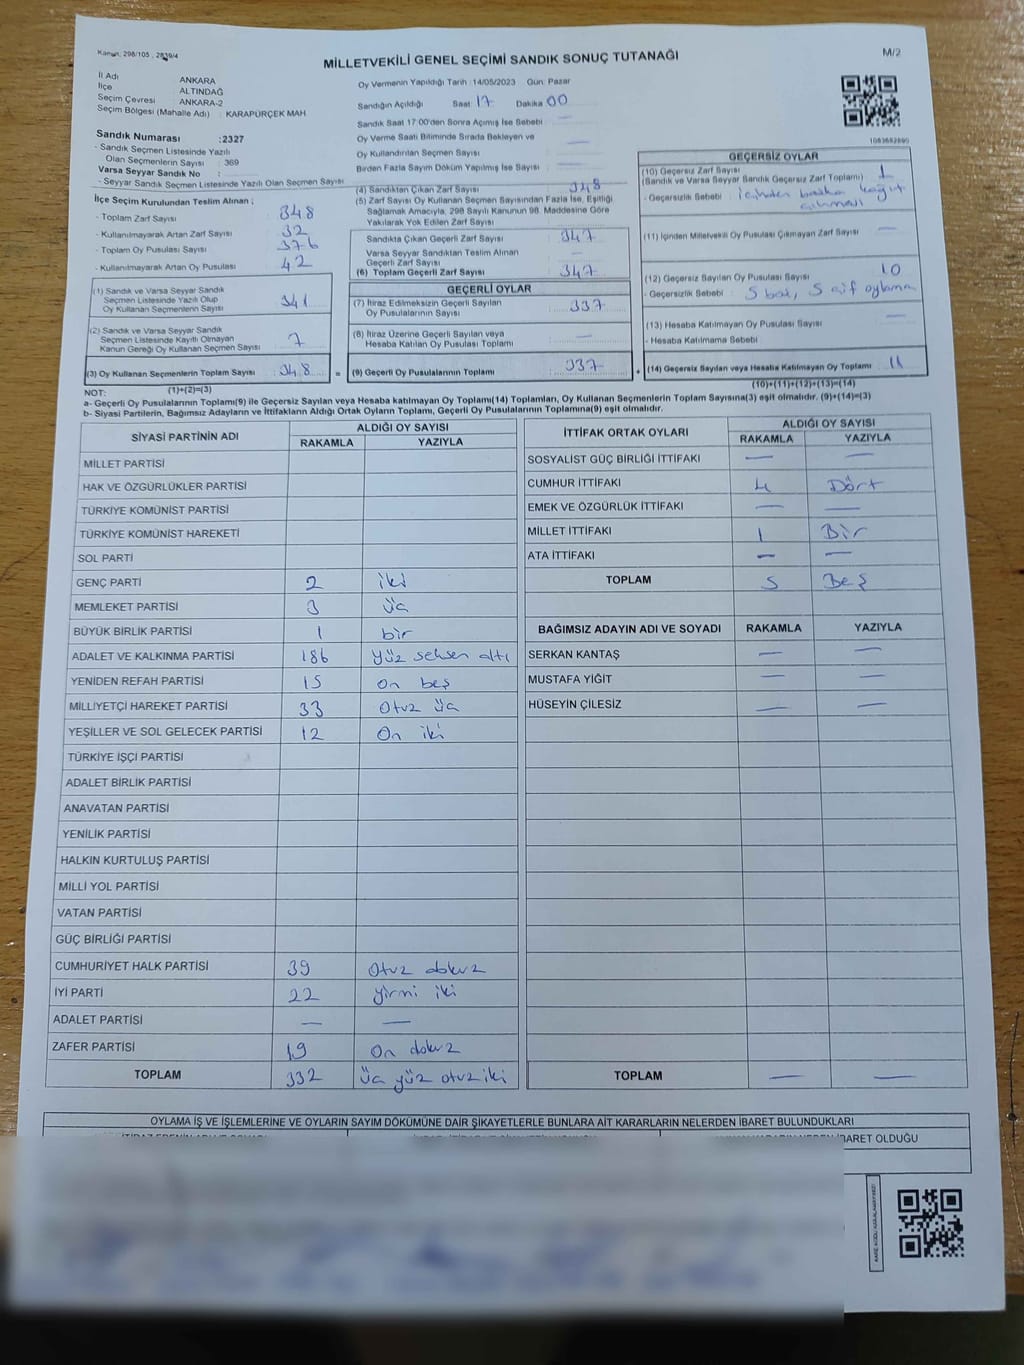 Kanun, 298/105 , 2839/4
MİLLETVEKİLİ GENEL SEÇİMİ SANDIK SONUÇ TUTANAĞI
M/2
İl Adı ANKARA
İlçe ALTINDAĞ
Seçim Çevresi ANKARA-2
Seçim Bölgesi (Mahalle Adı) : KARAPÜRÇEK MAH
Sandık Numarası :2327
- Sandık Seçmen Listesinde Yazılı
Olan Seçmenlerin Sayısı : 369
Varsa Seyyar Sandık No :
- Seyyar Sandık Seçmen Listesinde Yazılı Olan Seçmen Sayısı
Oy Vermenin Yapıldığı Tarih : 14/05/2023 Gün: Pazar
Sandığın Açıldığı Saat 17 Dakika 00
Sandık Saat 17:00'den Sonra Açımış İse Sebebi : —
Oy Verme Saati Bitiminde Sırada Bekleyen ve
Oy Kullandırılan Seçmen Sayısı : —
Birden Fazla Sayım Döküm Yapılmış İse Sayısı : —
1083682890
İlçe Seçim Kurulundan Teslim Alınan ;
- Toplam Zarf Sayısı 348
- Kullanılmayarak Artan Zarf Sayısı 32
- Toplam Oy Pusulası Sayısı 376
- Kullanılmayarak Artan Oy Pusulası 42
(1) Sandık ve Varsa Seyyar Sandık
Seçmen Listesinde Yazılı Olup
Oy Kullanan Seçmenlerin Sayısı 341
(2) Sandık ve Varsa Seyyar Sandık
Seçmen Listesinde Kayıtlı Olmayan
Kanun Gereği Oy Kullanan Seçmen Sayısı 7
(3) Oy Kullanan Seçmenlerin Toplam Sayısı 348 =
(1)+(2)=(3)
(4) Sandıktan Çıkan Zarf Sayısı 348
(5) Zarf Sayısı Oy Kullanan Seçmen Sayısından Fazla İse, Eşitliği
Sağlamak Amacıyla, 298 Sayılı Kanunun 98. Maddesine Göre
Yakılarak Yok Edilen Zarf Sayısı
Sandıkta Çıkan Geçerli Zarf Sayısı 347
Varsa Seyyar Sandıktan Teslim Alınan
Geçerli Zarf Sayısı —
(6) Toplam Geçerli Zarf Sayısı 347
GEÇERLİ OYLAR
(7) İtiraz Edilmeksizin Geçerli Sayılan
Oy Pusulalarının Sayısı : 337
(8) İtiraz Üzerine Geçerli Sayılan veya
Hesaba Katılan Oy Pusulası Toplamı —
(9) Geçerli Oy Pusulalarının Toplamı 337 +
GEÇERSİZ OYLAR
(10) Geçersiz Zarf Sayısı
(Sandık ve Varsa Seyyar Sandık Geçersiz Zarf Toplamı) : 1
- Geçersizlik Sebebi : içinden başka kağıt
çıkması
(11) İçinden Milletvekili Oy Pusulası Çıkmayan Zarf Sayısı —
(12) Geçersiz Sayılan Oy Pusulası Sayısı 10
- Geçersizlik Sebebi : 5 boş, 5 çif oylama
(13) Hesaba Katılmayan Oy Pusulası Sayısı —
- Hesaba Katılmama Sebebi
(14) Geçersiz Sayılan veya Hesaba Katılmayan Oy Toplamı 11
(10)+(11)+(12)+(13)=(14)
NOT:
a- Geçerli Oy Pusulalarının Toplamı(9) ile Geçersiz Sayılan veya Hesaba katılmayan Oy Toplamı(14) Toplamları, Oy Kullanan Seçmenlerin Toplam Sayısına(3) eşit olmalıdır. (9)+(14)=(3)
b- Siyasi Partilerin, Bağımsız Adayların ve İttifakların Aldığı Ortak Oyların Toplamı, Geçerli Oy Pusulalarının Toplamına(9) eşit olmalıdır.
SİYASİ PARTİNİN ADI ALDIĞI OY SAYISI
RAKAMLA YAZIYLA
MİLLET PARTİSİ
HAK VE ÖZGÜRLÜKLER PARTİSİ
TÜRKİYE KOMÜNİST PARTİSİ
TÜRKİYE KOMÜNİST HAREKETİ
SOL PARTİ
GENÇ PARTİ 2 iki
MEMLEKET PARTİSİ 3 üç
BÜYÜK BİRLİK PARTİSİ 1 bir
ADALET VE KALKINMA PARTİSİ 186 yüz seksen altı
YENİDEN REFAH PARTİSİ 15 on beş
MİLLİYETÇİ HAREKET PARTİSİ 33 Otuz üç
YEŞİLLER VE SOL GELECEK PARTİSİ 12 On iki
TÜRKİYE İŞÇİ PARTİSİ
ADALET BİRLİK PARTİSİ
ANAVATAN PARTİSİ
YENİLİK PARTİSİ
HALKIN KURTULUŞ PARTİSİ
MİLLİ YOL PARTİSİ
VATAN PARTİSİ
GÜÇ BİRLİĞİ PARTİSİ
CUMHURİYET HALK PARTİSİ 39 Otuz dokuz
İYİ PARTİ 22 yirmi iki
ADALET PARTİSİ — —
ZAFER PARTİSİ 19 On dokuz
TOPLAM 332 üç yüz otuz iki
İTTİFAK ORTAK OYLARI ALDIĞI OY SAYISI
RAKAMLA YAZIYLA
SOSYALİST GÜÇ BİRLİĞİ İTTİFAKI — —
CUMHUR İTTİFAKI 4 Dört
EMEK VE ÖZGÜRLÜK İTTİFAKI — —
MİLLET İTTİFAKI 1 Bir
ATA İTTİFAKI — —
TOPLAM 5 Beş
BAĞIMSIZ ADAYIN ADI VE SOYADI RAKAMLA YAZIYLA
SERKAN KANTAŞ — —
MUSTAFA YİĞİT — —
HÜSEYİN ÇİLESİZ — —
TOPLAM — —
OYLAMA İŞ VE İŞLEMLERİNE VE OYLARIN SAYIM DÖKÜMÜNE DAİR ŞİKAYETLERLE BUNLARA AİT KARARLARIN NELERDEN İBARET BULUNDUKLARI
İBARET OLDUĞU